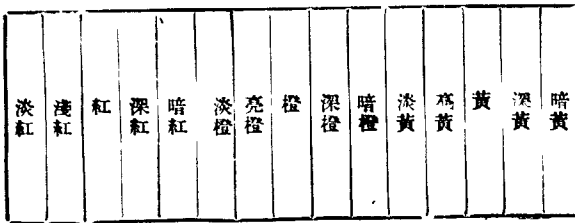 淡紅
淺紅
紅
深紅
暗紅
淡橙
亮橙
橙
深橙
暗橙
淡黃
亮黃
黃
深黃
暗黃